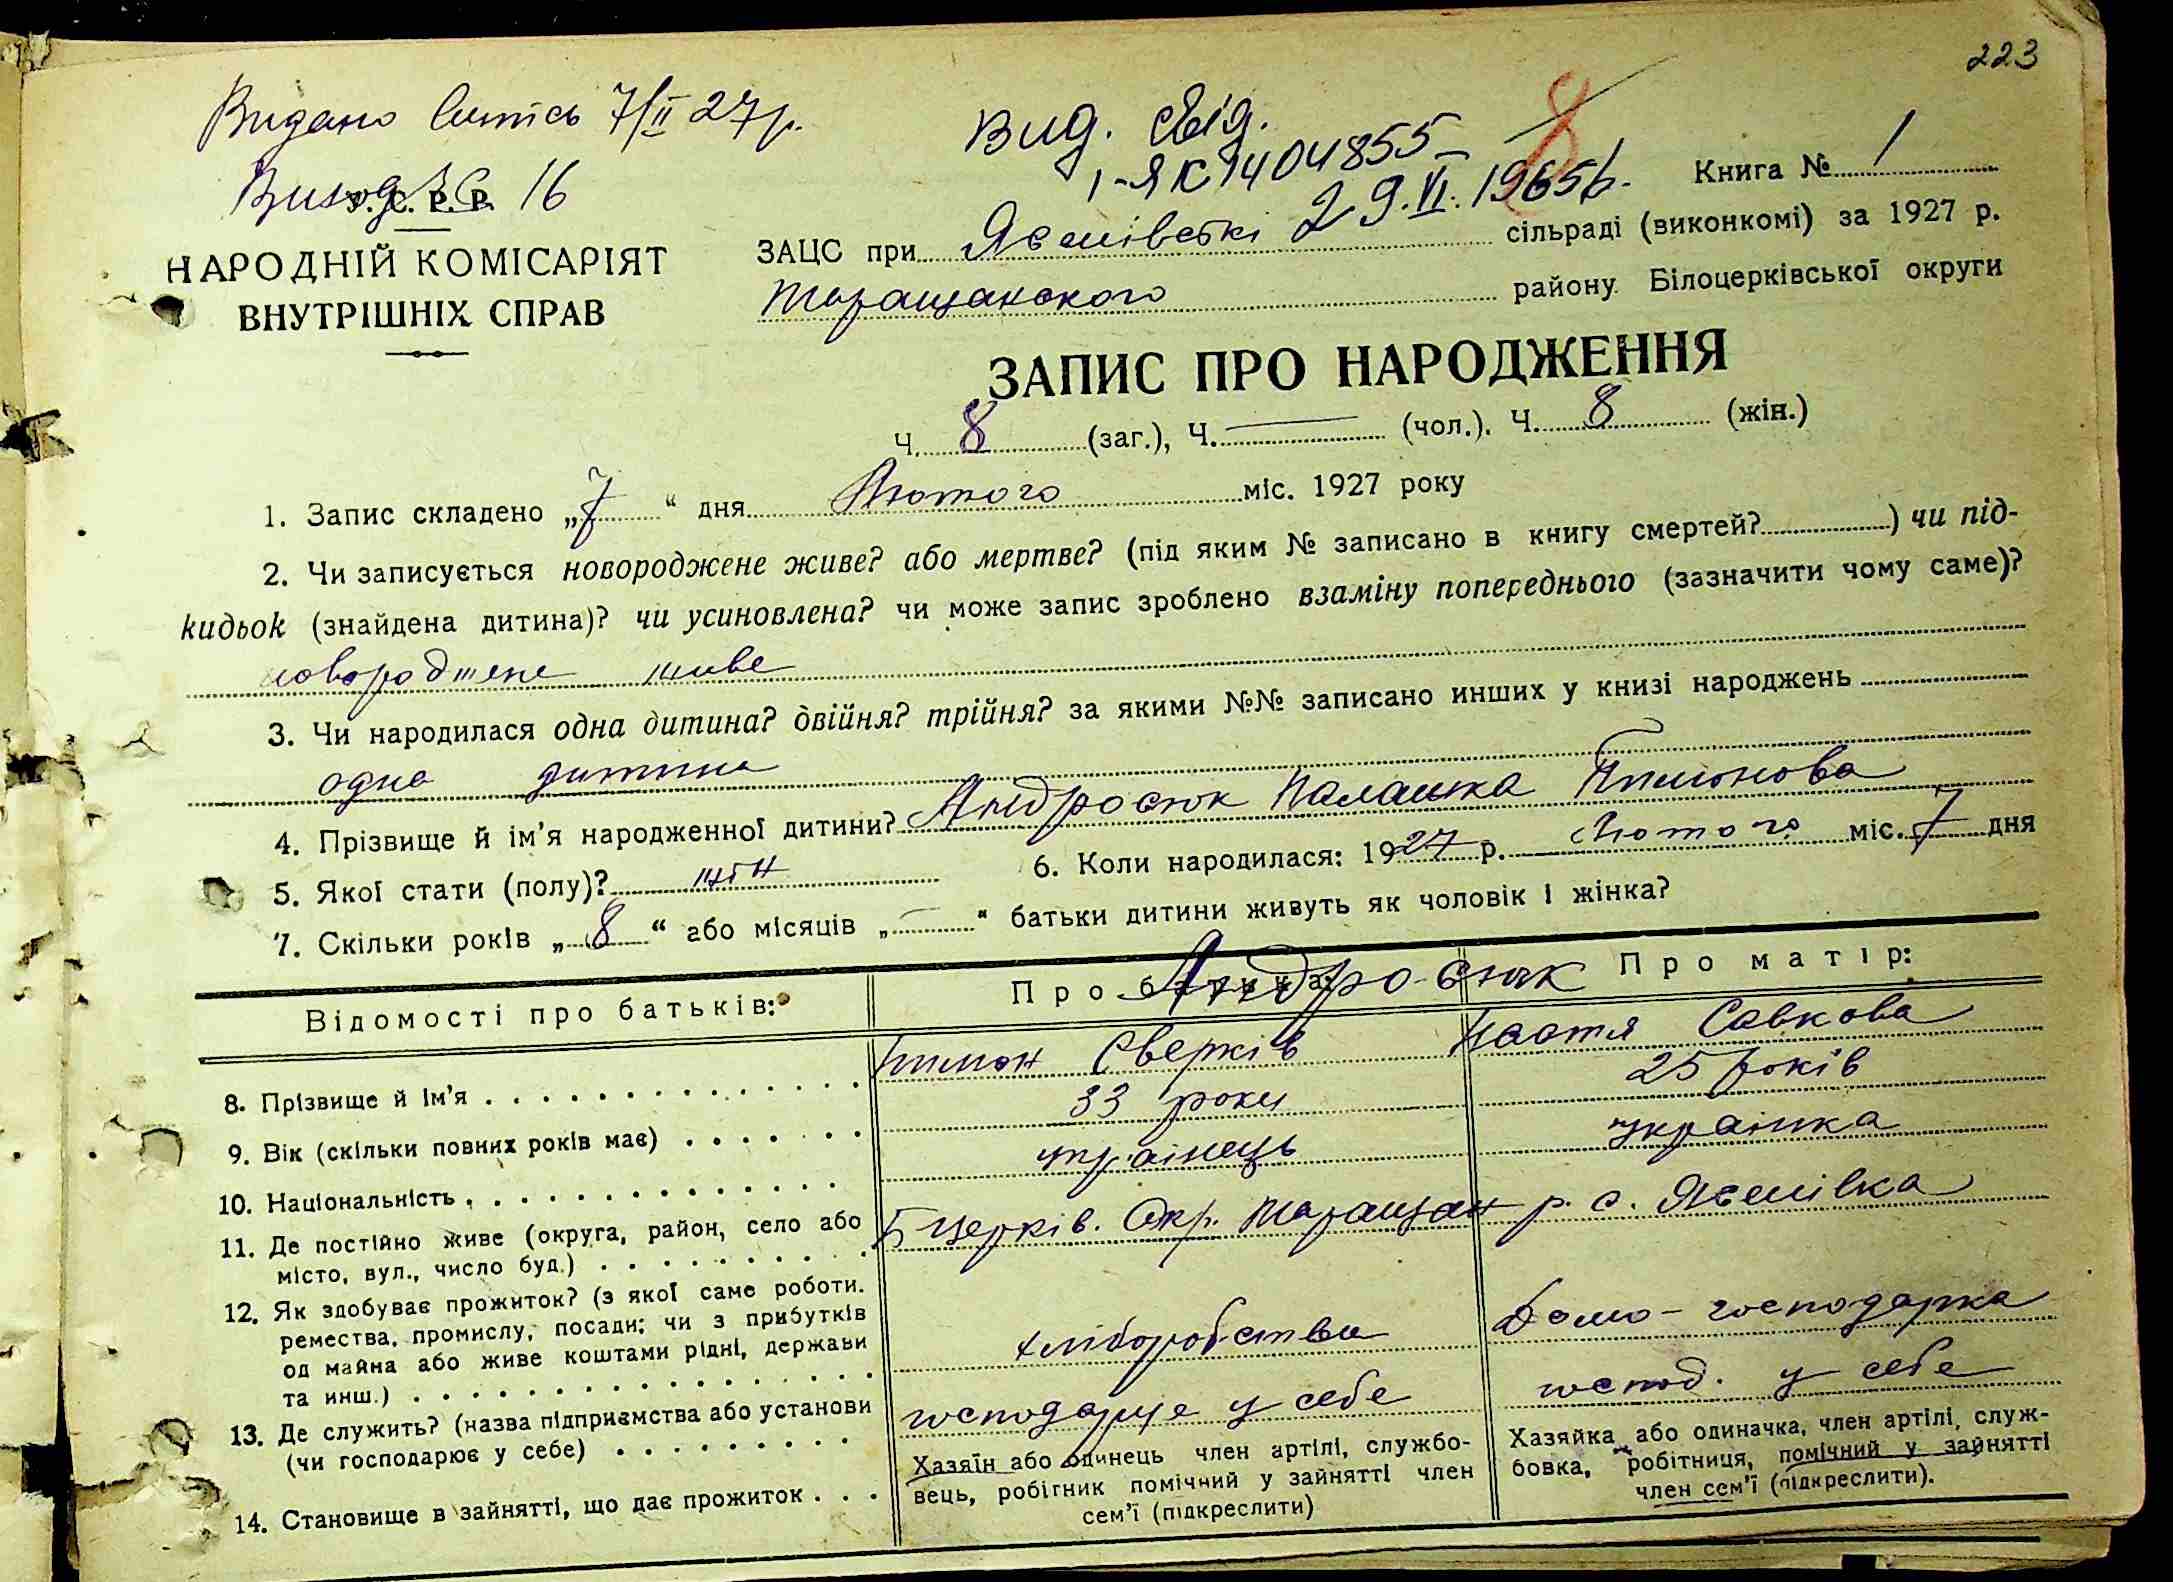 223
Видано Витєь 7/II 27 р.
Вид. свід.
1-ЯК 1404855
29.VI.1965 р.
16
У. С. Р. Р.
НАРОДНІЙ КОМІСАРІЯТ
ВНУТРІШНІХ СПРАВ
Книга № 1
ЗАЦС при сільраді (виконкомі) за 1927 р.
Таращанского району Білоцерківської округи
ЗАПИС ПРО НАРОДЖЕННЯ
Ч. 8 (заг.), Ч. — (чол.). Ч. 8 (жін.)
1. Запис складено „7“ дня Лютого міс. 1927 року
2. Чи записується новороджене живе? або мертве? (під яким № записано в книгу смертей? ) чи під-
кидьок (знайдена дитина)? чи усиновлена? чи може запис зроблено взаміну попереднього (зазначити чому саме)?
новороджене живе
3. Чи народилася одна дитина? двійня? трійня? за якими №№ записано инших у книзі народжень
одна дитина
4. Прізвище й ім’я народженної дитини? Андросюк Палашка Пимонова
5. Якої стати (полу)? жін 6. Коли народилася: 1927 р. Лютого міс. 7 дня
7. Скільки років „8“ або місяців „—“ батьки дитини живуть як чоловік і жінка?
Відомості про батьків: Про батька: Про матір:
Андросюк
8. Прізвище й ім’я Пимон Сверків Настя Савкова
9. Вік (скільки повних років має) 33 роки 25 років
10. Національність українець українка
11. Де постійно живе (округа, район, село або
місто, вул., число буд.) Б церків. Окр. Таращан р. с.
12. Як здобуває прожиток? (з якої саме роботи.
ремества, промислу, посади; чи з прибутків
од майна або живе коштами рідні, держави
та инш.) хліборобства Домо-господарка
13. Де служить? (назва підприємства або установи
(чи господарює у себе) господарує у себе господ. у себе
14. Становище в зайнятті, що дає прожиток
Хазяїн або одинець член артілі, службо-
вець, робітник помічний у зайнятті член
сем’ї (підкреслити)
Хазяйка або одиначка, член артілі, служ-
бовка, робітниця, помічний у зайнятті
член сем’ї (підкреслити).